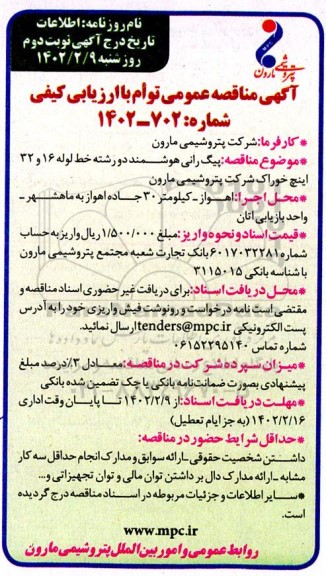 نام روزنامه: اطلاعات
تاریخ درج آگهی نوبت دوم
روز شنبه ۱۴۰۲/۲/۹
پتروشیمی مارون
آگهی مناقصه عمومی توأم با ارزیابی کیفی
شماره: ۷۰۲-۱۴۰۲
*کارفرما: شرکت پتروشیمی مارون
*موضوع مناقصه: پیگ رانی هوشمند دو رشته خط لوله ۱۶ و ۳۲
اینچ خوراک شرکت پتروشیمی مارون
*محل اجرا: اهواز - کیلومتر ۳۰ جاده اهواز به ماهشهر -
واحد بازیابی اتان
*قیمت اسناد و نحوه واریز: مبلغ ۱/۵۰۰/۰۰۰ ریال واریز به حساب
شماره ۶۰۱۷۰۳۲۲۸۱ بانک تجارت شعبه مجتمع پتروشیمی مارون
با شناسه بانکی ۳۱۱۵۰۱۵
*محل دریافت اسناد: برای دریافت غیر حضوری اسناد مناقصه و
مقتضی است نامه درخواست و رونوشت فیش واریزی خود را به آدرس
پست الکترونیکی tenders@mpc.ir ارسال نمائید.
شماره تماس ۰۶۱۵۲۲۹۵۱۴۰
*میزان سپرده شرکت در مناقصه: معادل ۳٪ درصد مبلغ
پیشنهادی بصورت ضمانت نامه بانکی یا چک تضمین شده بانکی
*مهلت دریافت اسناد: از ۱۴۰۲/۲/۹ تا پایان وقت اداری
۱۴۰۲/۲/۱۶ (به جز ایام تعطیل)
*حداقل شرایط حضور در مناقصه:
داشتن شخصیت حقوقی - ارائه سوابق و مدارک انجام حداقل سه کار
مشابه - ارائه مدارک دال بر داشتن توان مالی و توان تجهیزاتی و...
*سایر اطلاعات و جزئیات مربوطه در اسناد مناقصه درج گردیده
است.
www.mpc.ir
روابط عمومی و امور بین الملل پتروشیمی مارون